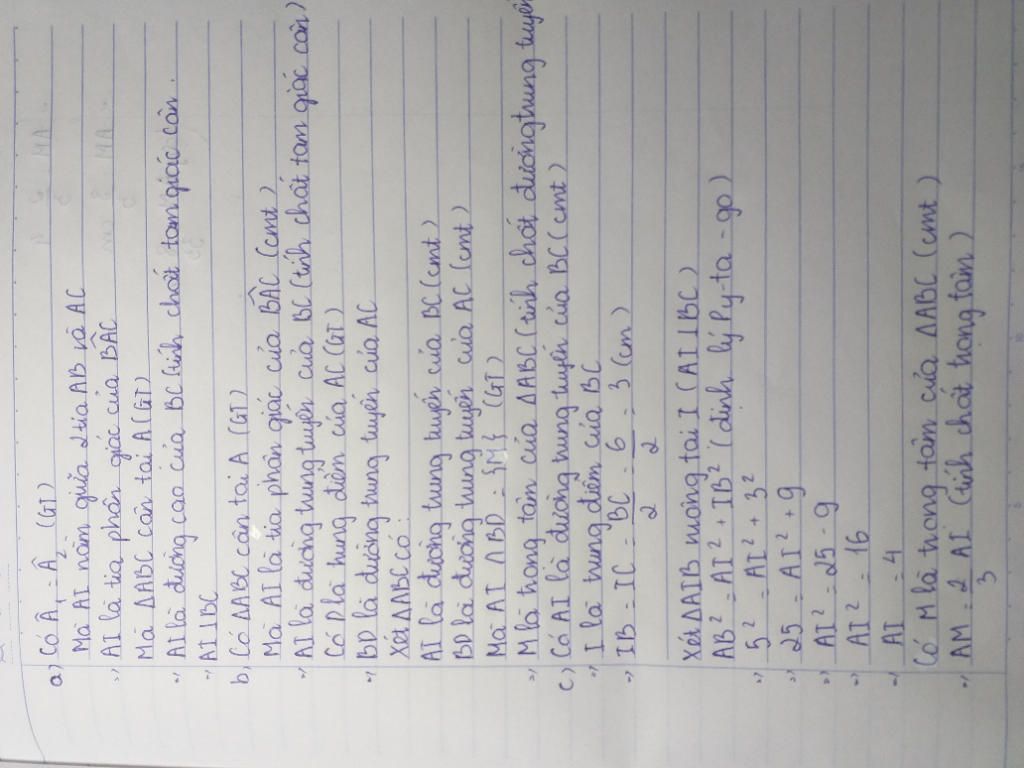 a) Có Â₁ = Â² (GT)
Mà AI nằm giữa 2 tia AB và AC
=) AI là tia phân giác của BÂC
Mà ΔABC cân tại A (GT)
=) AI là đường cao của BC (tính chất tam giác cân.
=) AI ⊥ BC
b) Có ΔABC cân tại A (GT)
Mà AI là tia phân giác của BÂC (cmt)
=) AI là đường trung tuyến của BC (tính chất tam giác cân)
Có D là trung điểm của AC (GT)
=) BD là đường trung tuyến của AC
Xét ΔABC có:
AI là đường trung tuyến của BC (cmt)
BD là đường trung tuyến của AC (cmt)
Mà AI ∩ BD = {M} (GT)
=) M là trọng tâm của ΔABC (tính chất đường trung tuyến
c) Có AI là đường trung tuyến của BC (cmt)
=) I là trung điểm của BC
=) IB = IC = BC/2 = 6/2 = 3 (cm)
Xét ΔAIB vuông tại I (AI ⊥ BC)
AB² = AI² + IB² (định lý Py-ta-go)
=) 5² = AI² + 3²
=) 25 = AI² + 9
=) AI² = 25 - 9
=) AI² = 16
=) AI = 4
Có M là trọng tâm của ΔABC (cmt)
=) AM = 2/3 AI (tính chất trọng tâm)